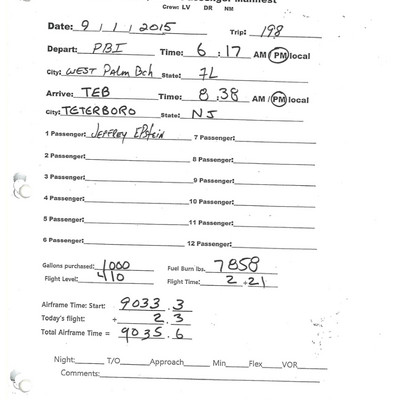 Passenger Manifest
Crew: LV DR NM
Date: 9 / 1 / 2015 Trip: 198
Depart: PBI Time: 6 : 17 AM / PM local
City: WEST Palm Bch State: FL
Arrive: TEB Time: 8 : 38 AM / PM local
City: TETERBORO State: NJ
1 Passenger: Jeffrey Epstein 7 Passenger:
2 Passenger: 8 Passenger:
3 Passenger: 9 Passenger:
4 Passenger: 10 Passenger:
5 Passenger: 11 Passenger:
6 Passenger: 12 Passenger:
Gallons purchased: 1000 Fuel Burn lbs. 7858
Flight Level: 410 Flight Time: 2 + 21
Airframe Time: Start: 9033 . 3
Today's flight: + 2 . 3
Total Airframe Time = 9035 . 6
Night: T/O Approach Min Flex VOR
Comments: